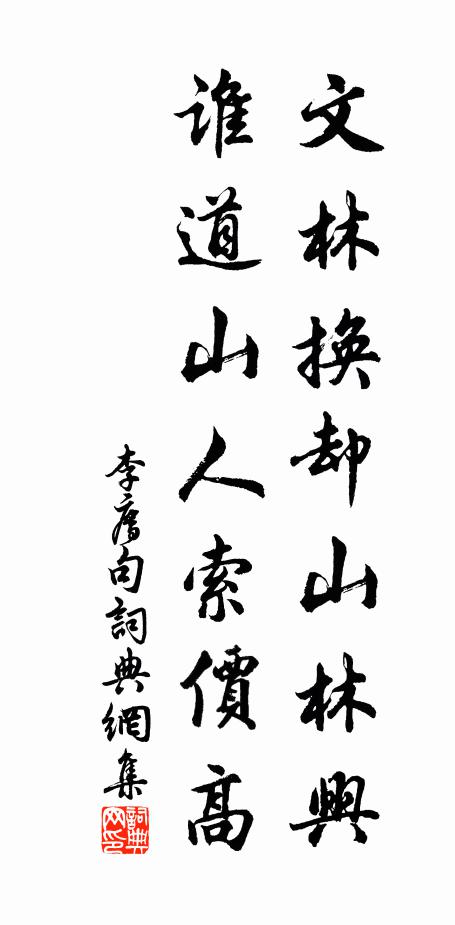 文林換却山林興
誰道山人索價高
李廌句詞典網集
詞典网印